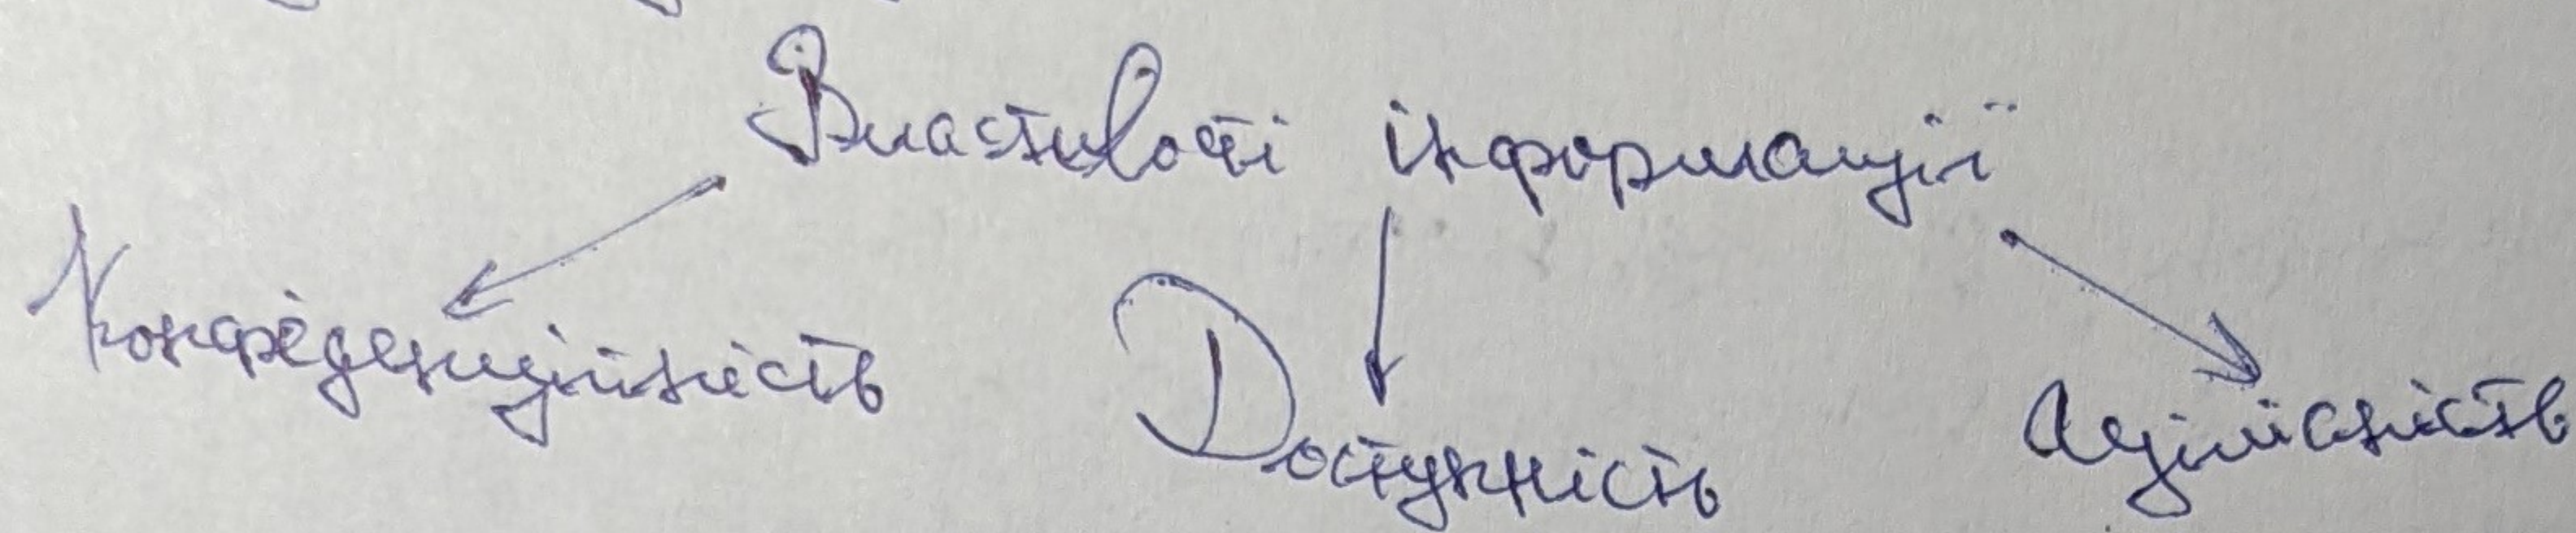 Властивості інформації
Конфіденційність
Доступність
Цілісність